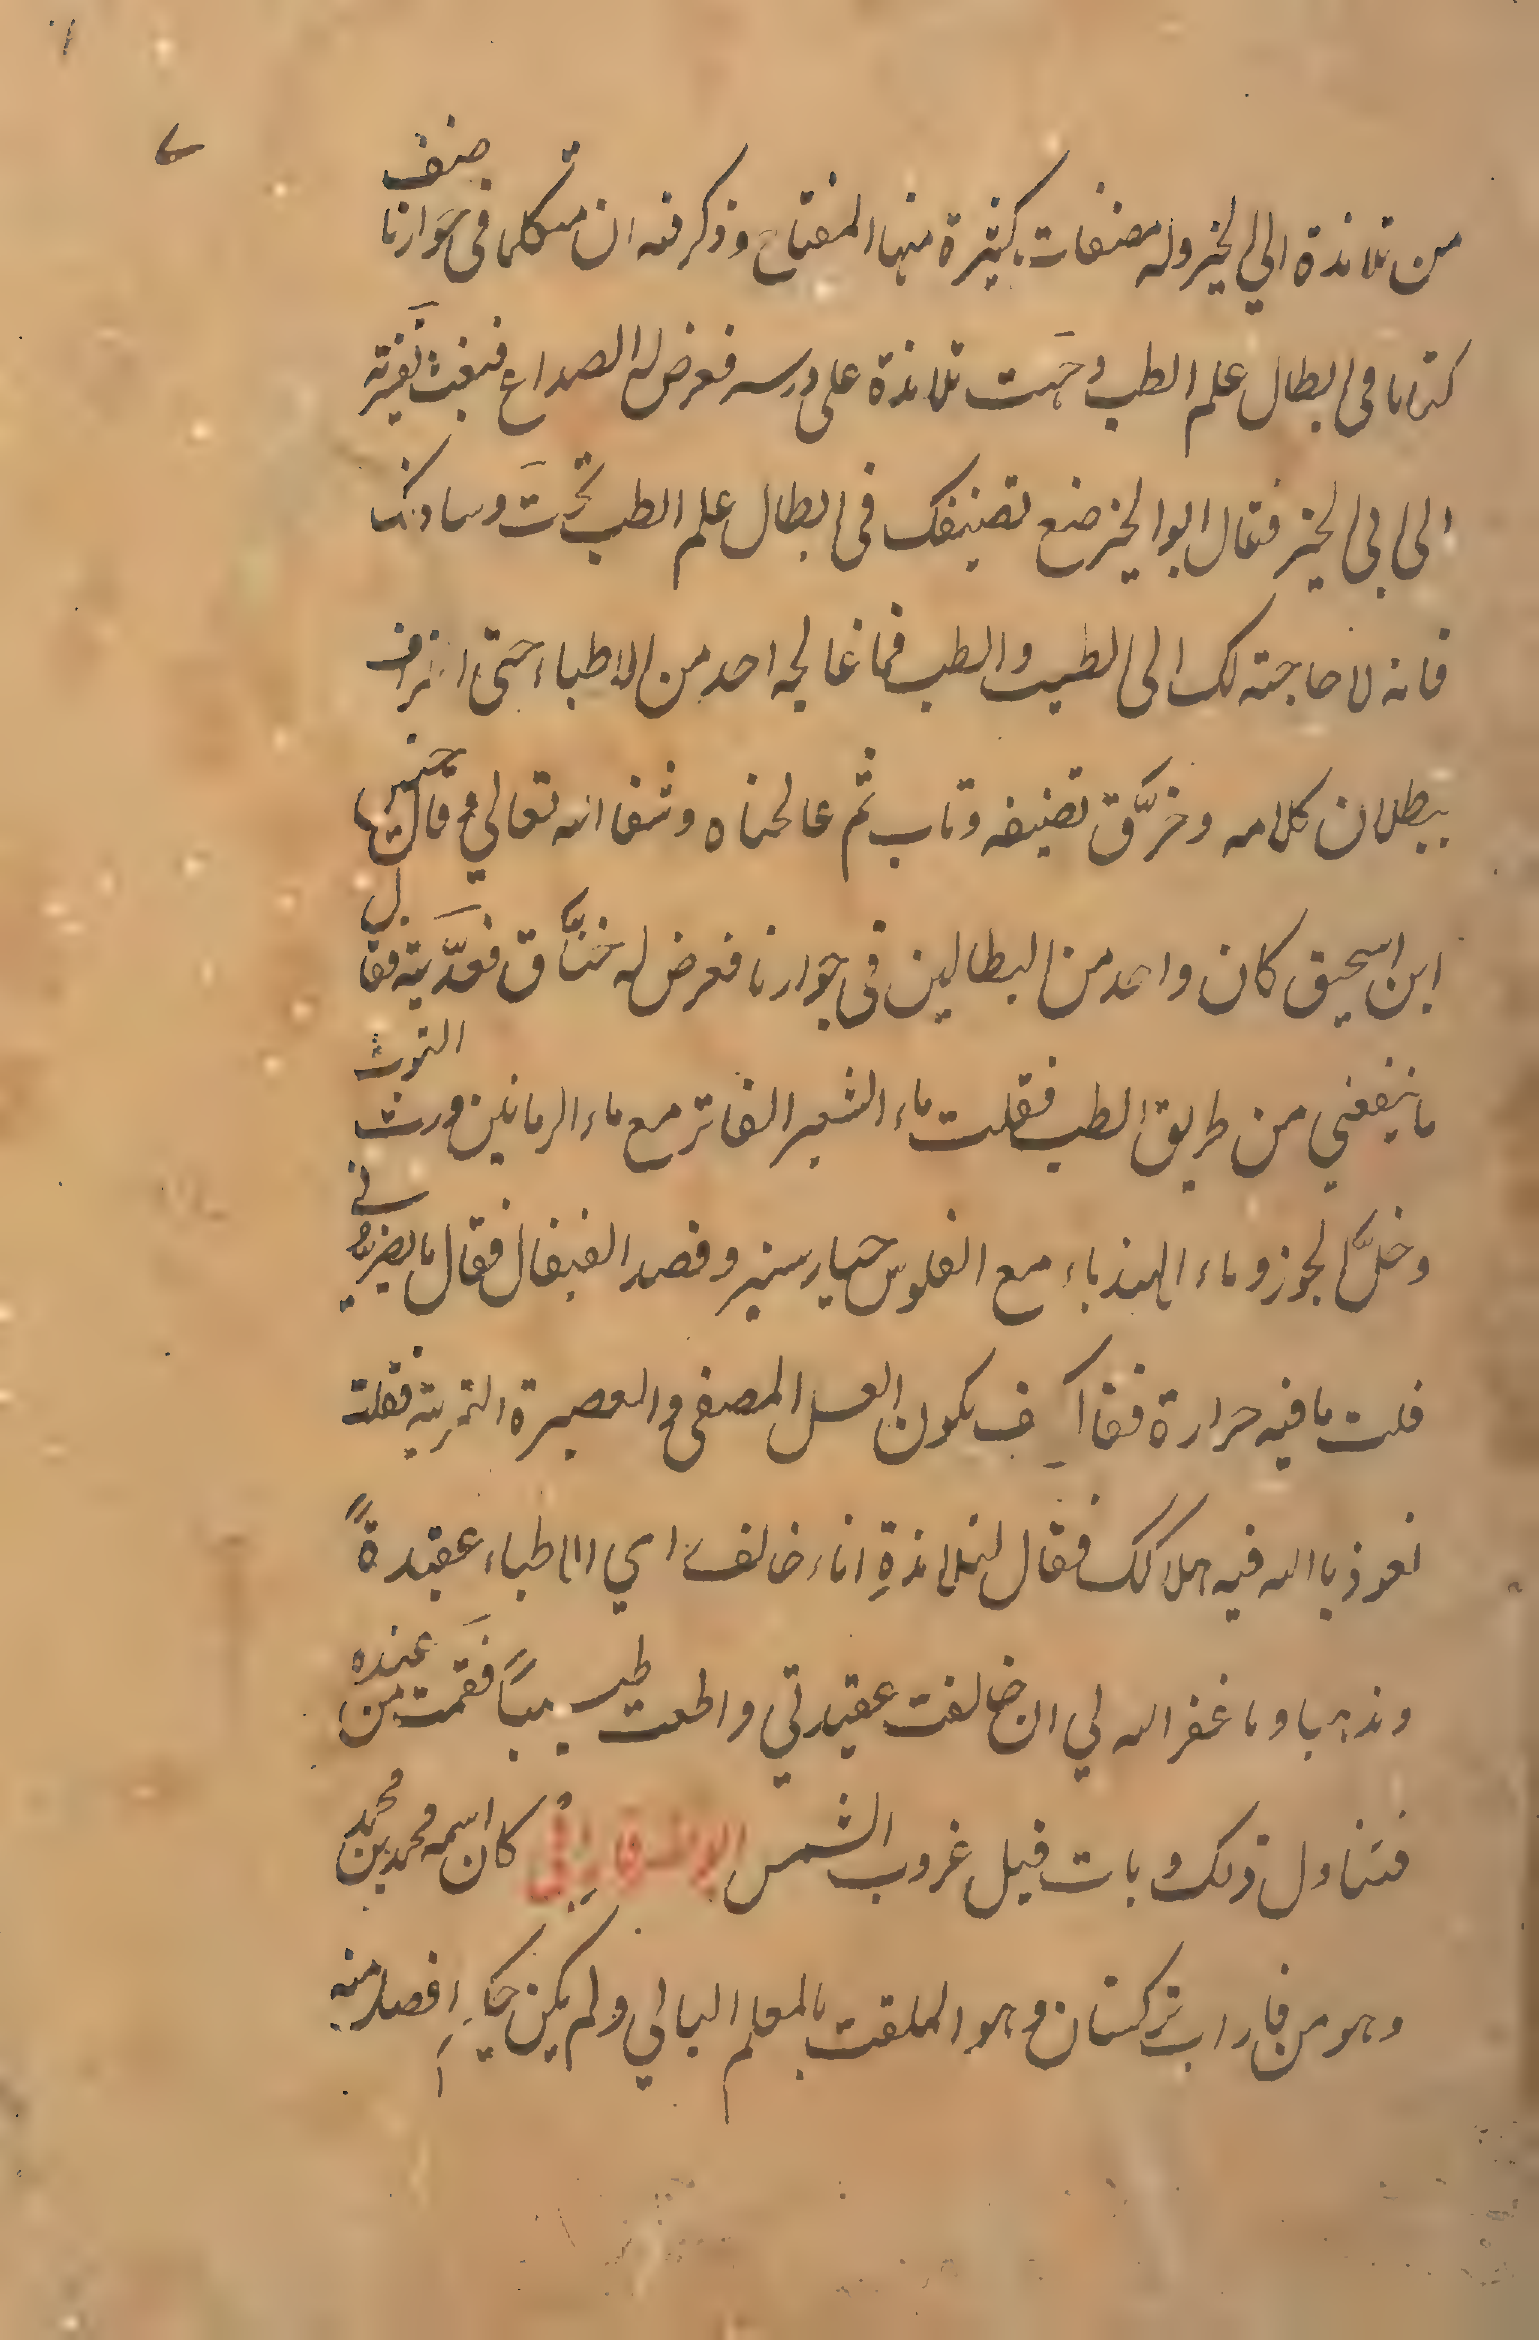 من تلامذة ابي الخير وله مصنفات كثيرة منها المفتاح وذكر فيه ان متكلما في جوارنا صنف
كتابا في ابطال علم الطب وحمت تلامذة على درسه فعرض له الصداع فبعث
الى ابي الخير فقال ابو الخير ضع تصنيفك في ابطال علم الطب تحت وسادتك
فانه لا حاجته لك الى الطبيب والطب فما عالجه احد من الاطباء حتى اعترف
ببطلان كلامه وخرّق تصنيفه وتاب ثم عالجناه وشفا الله تعالي وقال حنين
ابن اسحيق كان واحد من البطالين في جوارنا فعرض له خنّاق فعدّيته فقال
ما ينفعني من طريق الطب فقلت ماء الشعير الفاتر مع ماء الرمانين ورب التوث
وخلّ الجوز وماء الهندباء مع الفلوس خيار سنبر وفصد القيفال فقال ما يضرني
قلت ما فيه حرارة فقال كيف يكون العسل المصفى والعصيرة التمرية فقلت
نعوذ بالله فيه هلاكك فقال لتلامذةِ انا اخالف راي الاطباء عقيدةً
ومذهبا وما غفر الله لي ان خالفت عقيدتي واطعت طبيباً فقمت من عنده
فتناول ذلك وبات قبل غروب الشمس كان اسمه محمد بن محمد
وهو من فاراب تركستان وهو الملقب بالمعلم الثاني ولم يكن افضل منه